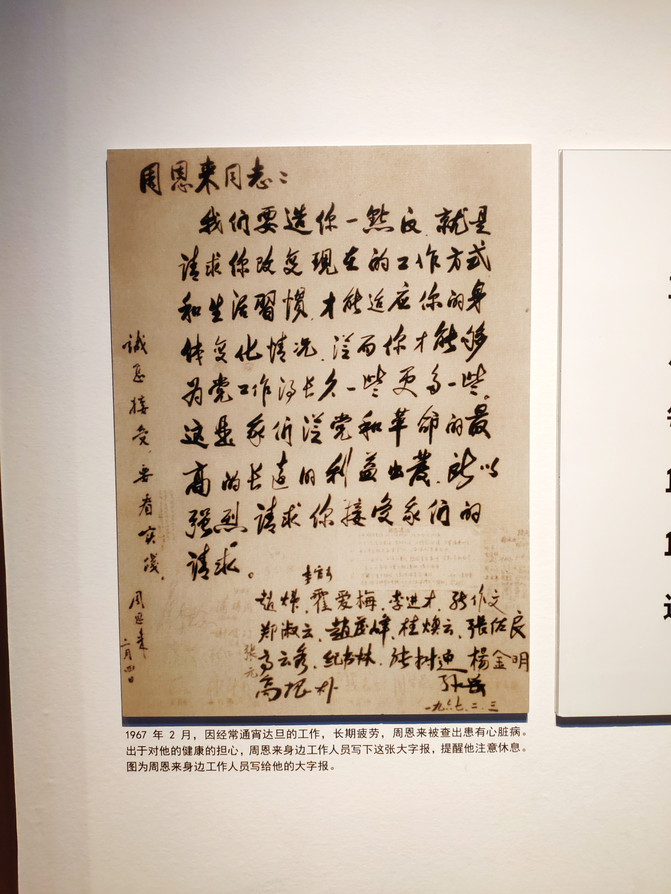 周恩来同志：
我们要造你一点反，就是
请求你改变现在的工作方式
和生活習慣，才能适应你的身
体变化情况，从而你才能够
为党工作得长久一些更多一些。
这是我们从党和革命的最
高的长远的利益出发，所以
强烈请求你接受我们的
请求。
赵炜 霍爱梅 李进才 张作文
郑淑云 赵茂峰 桂焕云 張佐良
高云秀 纪书林 张树迎 楊金明
张元
高振朴
一九六七.二.三
誠恳接受，要看实践。
周恩来
二月四日
1967 年 2 月，因经常通宵达旦的工作，长期疲劳，周恩来被查出患有心脏病。
出于对他的健康的担心，周恩来身边工作人员写下这张大字报，提醒他注意休息。
图为周恩来身边工作人员写给他的大字报。